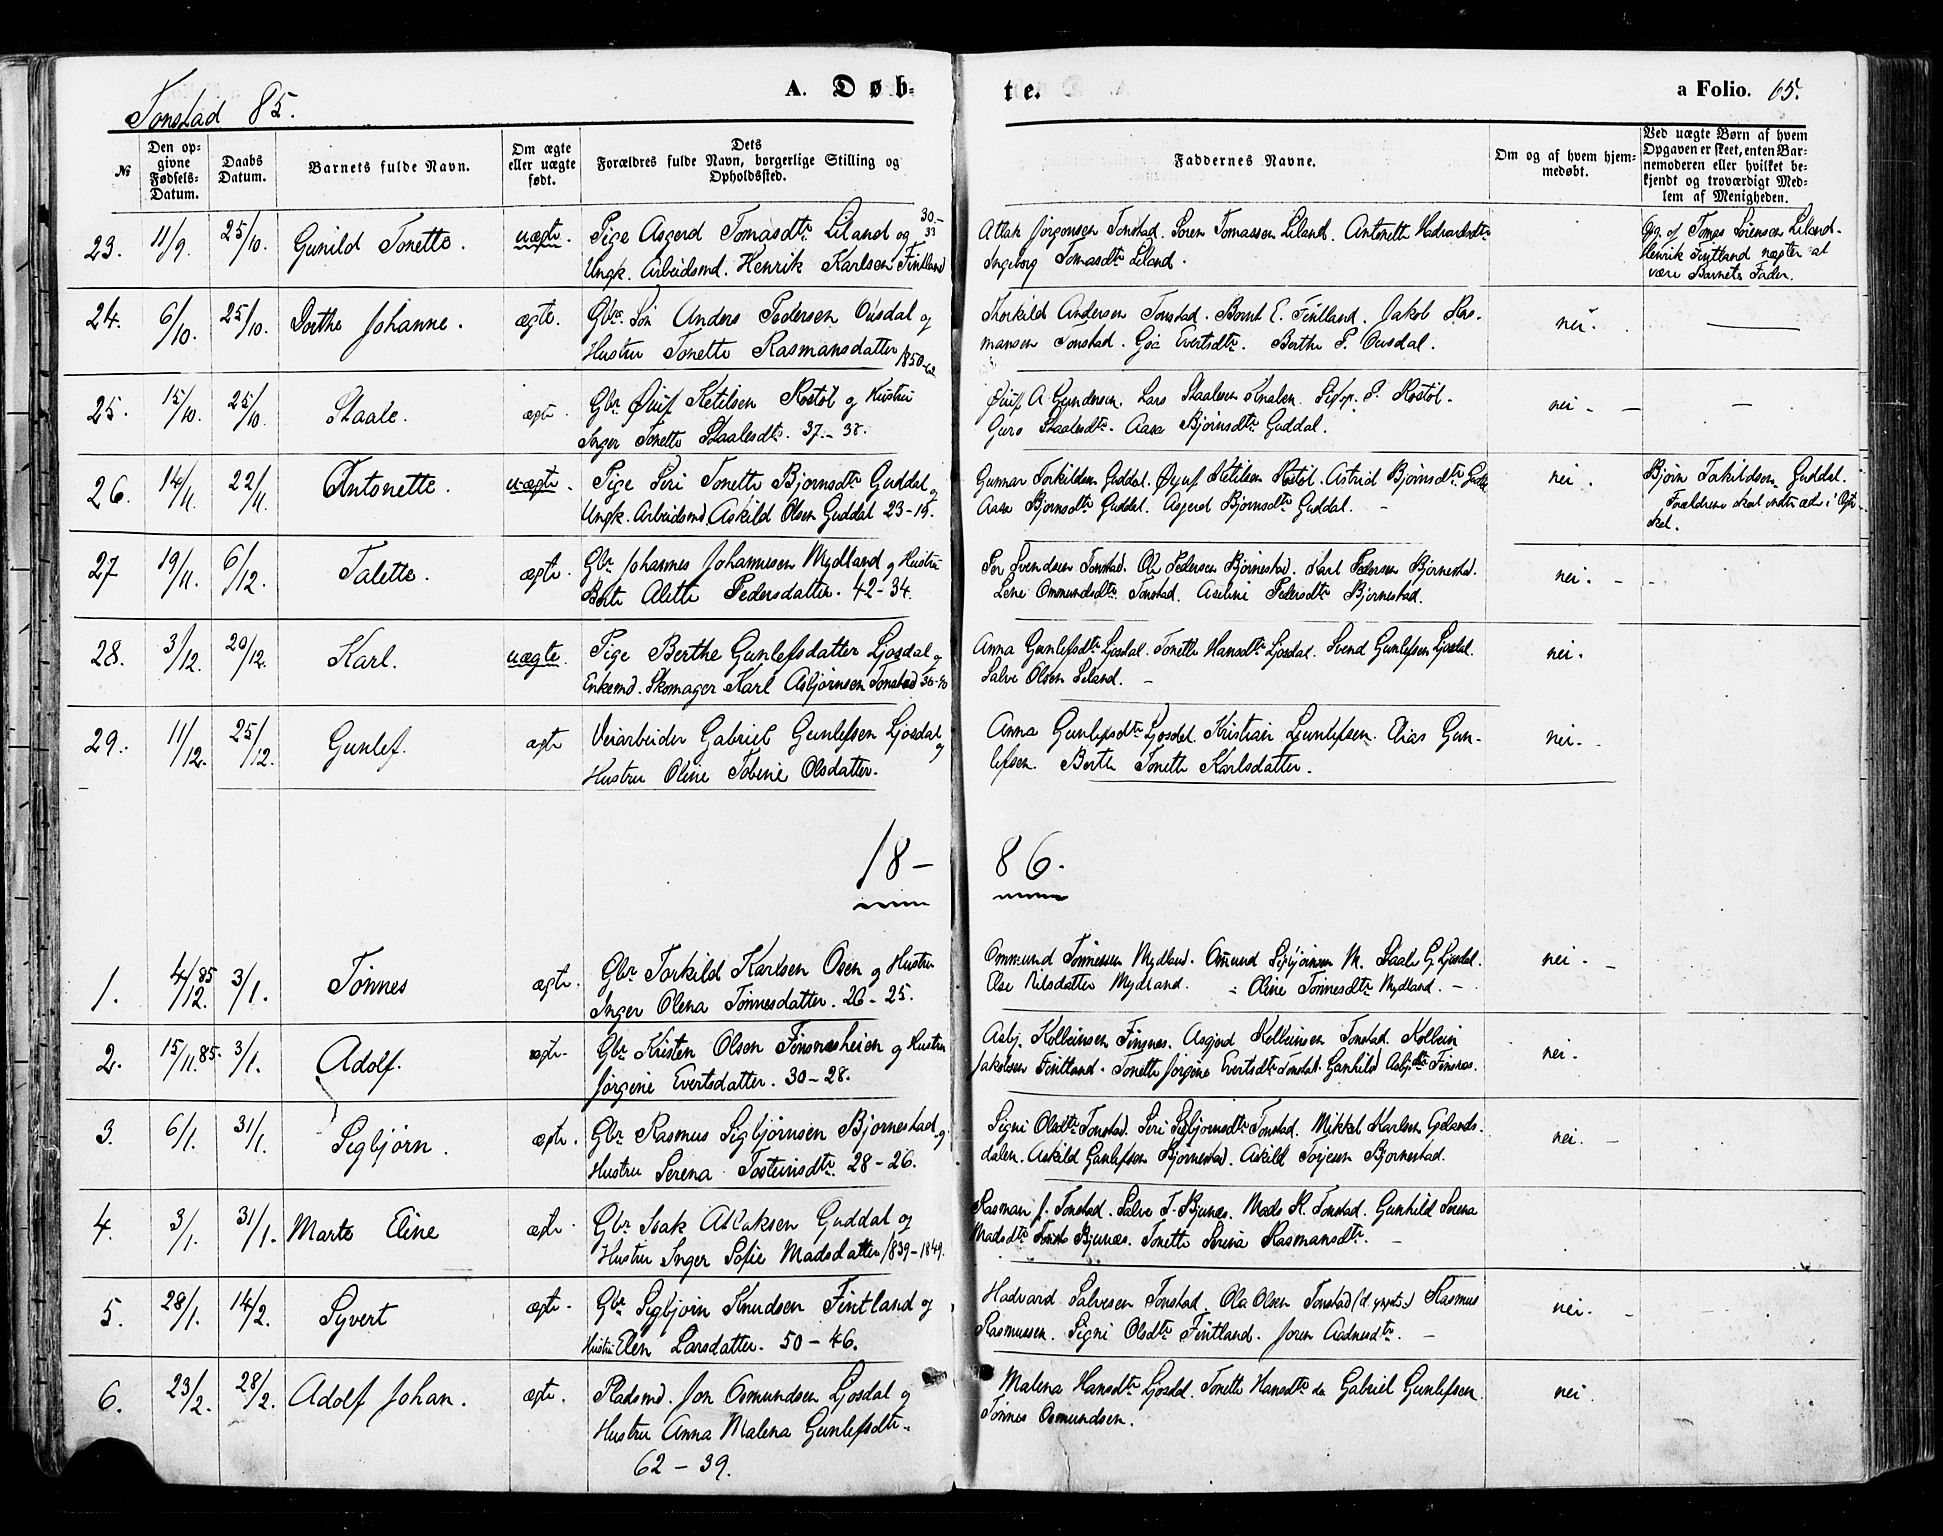 Tonstad 85.
A. Døb-
te.
a Folio. 65.
№
Den op-
givne
Fødsels-
Datum.
Daabs
Datum.
Barnets fulde Navn.
Om ægte
eller uægte
født.
Dets
Forældres fulde Navn, borgerlige Stilling og
Opholdssted.
Faddernes Navne.
Om og af hvem hjem-
medøbt.
Ved uægte Børn af hvem
Opgaven er skeet, enten Bar-
nemoderen eller hvilket be-
kjendt og troværdigt Med-
lem af Menigheden.
23. 11/9. 25/10. Gunild Tonette. uægte. Pige Asgerd Tomasdtr. Liland og 30-33
Ungk. Arbeidsmd. Henrik Karlsen Fintland
Atlak Jørgensen Tonstad. Søren Tomassen Liland. Antonette Hadvardsdtr
Ingeborg Tomasdtr Liland.
Opg. af Tomas Sørensen Liland.
Henrik Fintland nægter at
være Barnets Fader.
24. 6/10. 25/10. Dorthe Johanne. ægte. Gbr. Søn Anders Pedersen Ousdal og
Hustru Tonette Rasmansdatter 1850-62
Thorkild Andersen Tonstad. Bernt E. Fintland. Jakob Ras-
mansen Tonstad. Gea Evertsdtr. Berthe P. Ousdal.
nei.
25. 15/10. 25/10. Staale. ægte. Gbr. Øiuf Ketilsen Rostøl og Hustru
Inger Tonette Staalesdtr. 37-38.
Øiuf A. Gundersen. Lars Staalesen Knalen. P. Rostøl.
Guro Staalesdtr. Aasa Bjørnsdtr Guddal.
nei - —
26. 14/11. 22/11. Antonette. uægte. Pige Siri Tonette Bjørnsdtr Guddal og
Ungk. Arbeidsmd. Askild Olsen Guddal 23-19.
Gunnar Torkildsen Guddal. Øiuf Ketilsen Rostøl. Astrid Bjørnsdtr Guddal
Aasa Bjørnsdtr Guddal. Asgerd Bjørnsdtr Guddal. -
nei.
Bjørn Tarkildsen Guddal.
Forældrene skal indtræde i Ægte-
skab.
27 19/11. 6/12. Talette. ægte. Gbr. Johannes Johannesen Mydland og Hustru
Berte Alette Pedersdatter. 42-34.
Per Svendsen Tonstad. Ole Pedersen Bjørnestad. Karl Pedersen Bjørnestad.
Lene Ommundsdtr. Tonstad. Aseline Pedersdtr Bjørnestad.
nei. -
28. 3/12. 20/12. Karl. uægte. Pige Berthe Gunlefsdatter Ljosdal og
Enkemd. Skomager Karl Asbjørnsen Tonstad 36-40
Anna Gunlefsdtr Ljosdal. Tonette Hansdtr Ljosdal. Svend Gunlefsen Ljosdal.
Salve Olsen Liland. -
nei.
29. 11/12. 25/12. Gunlef. ægte Veiarbeider Gabriel Gunlefsen Ljosdal og
Hustru Oline Tobine Olsdatter.
Anna Gunlefsdtr Ljosdal. Kristian Gunlefsen. Elias Gun-
lefsen. Berthe Tonette Karlsdatter.
nei.
18-86.
1. 4/12. 85 3/1. Tønnes ægte. Gbr. Torkild Karlsen Osen og Hustru
Inger Olena Tønnesdatter. 26-25.
Ommund Tønnessen Mydland. Omund Sigbjørnsen M. Staale G. Ljosdal.
Else Nilsdatter Mydland. Oline Tønnesdtr Mydland. -
nei. -
2. 15/11.85. 3/1. Adolf. ægte. Gbr. Kristen Olsen Finsnesheien og Hustru
Jørgine Evertsdatter. 30-28.
Asbj. Kolbeinsen Finsnes. Asgerd Kolbeinsen Tonstad. Kolbein
Jakobsen Fintland. Tonette Jørgine Evertsdtr Tonstad. Gunhild Asbj.dtr Finsnes.
nei.
3. 6/1. 31/1. Sigbjørn. ægte. Gbr. Rasmus Sigbjørnsen Bjørnestad og
Hustru Serena Tosteinsdtr. 28-26.
Signi Olsdtr Tonstad. Siri Sigbjørnsdtr Tonstad. Mikkel Karlsen Egelands-
dalen. Askild Gunlefsen Bjørnestad. Askild Torjesen Bjørnestad.
nei. -
4. 3/1. 31/1. Marte Eline ægte. Gbr. Isak Atlaksen Guddal og
Hustru Inger Sofie Madsdatter 1839-1849.
Rasman J. Tonstad. Salve T. Bjunes. Mads R. Tonstad. Gunhild Serena
Madsdtr Bjunes. Tonette Serina Rasmansdtr. -
5. 28/1. 14/2. Syvert ægte. Gbr. Sigbjørn Knudsen Fintland og
Hustru Elen Larsdatter. 50-46.
Hadvard Salvesen Tonstad. Ola Olsen Tonstad (d. yngste.) Rasmus
Rasmussen. Signi Olsdtr Fintland. Joren Aadnesdtr. -
nei. -
6. 23/2. 28/2. Adolf Johan. ægte. Pladsmd. Jon Osmundsen Ljosdal og
Hustru Anna Malena Gunlefsdtr.
62-39.
Malena Hansdtr Ljosdal. Tonette Hansdtr do Gabriel Gunlefsen.
Tønnes Osmundsen.
nei